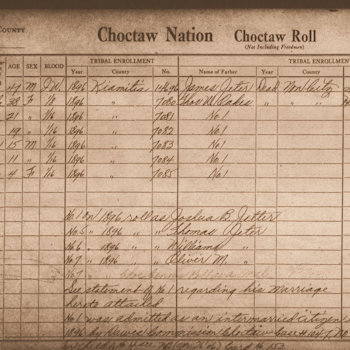 COUNTY
Choctaw Nation Choctaw Roll
(Not Including Freedmen)
TRIBAL ENROLLMENT TRIBAL ENROLLM
AGE SEX BLOOD Year County No. Name of Father Year
47 M I.W. 1896 Kiamitia James Jeter Dead Non Citz
38 F 1896 " 7080 Thos W Oakes
21 " 1/16 " " 7081 No 1
19 " 1/16 " " 7082 No 1
15 M 1/16 " " 7083 No 1
11 " 1/16 " " 7084 No 1
4 F 1/16 " " 7085 No 1
No 1 on 1896 roll as Joshua B. Jetter
No 5 " 1896 " " Thomas Jeter
No 6 " 1896 " " William "
No 7 " 1896 " " Oliver M. "
No 7
See statement of No 1 regarding his marriage
hereto attached
No 1 was admitted as an intermarried citizen
1896 by Dawes Commission Choctaw Case #